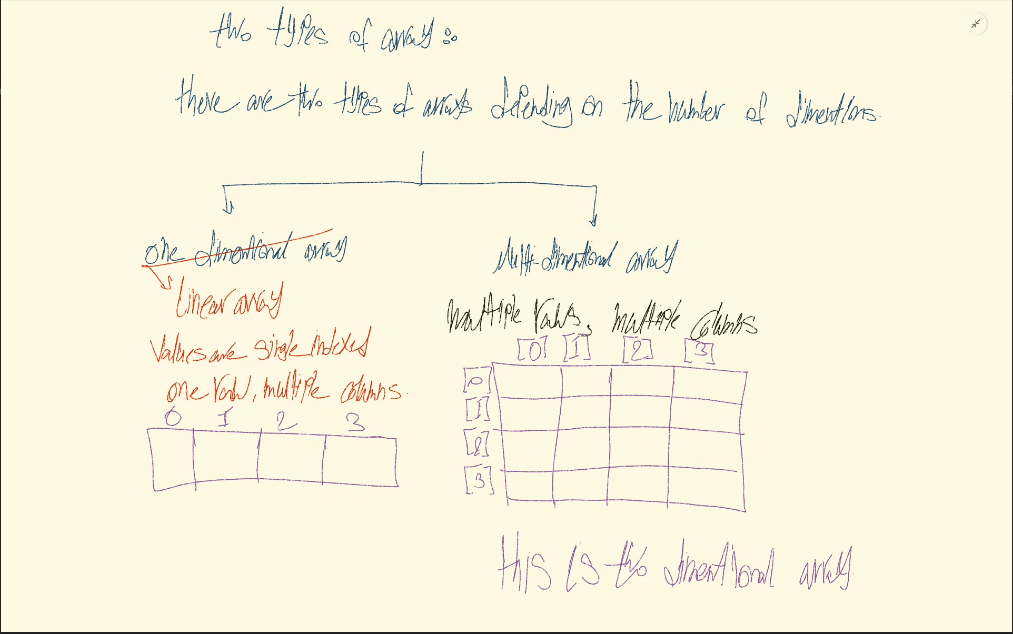 two types of array :
there are two types of arrays depending on the number of dimentions.
one dimentional array
Linear array
Values are single indexed
one row, multiple columns.
0 1 2 3
Multi-dimentional array
multiple rows, multiple columns
[0] [1] [2] [3]
[0]
[1]
[2]
[3]
this is two dimentional array